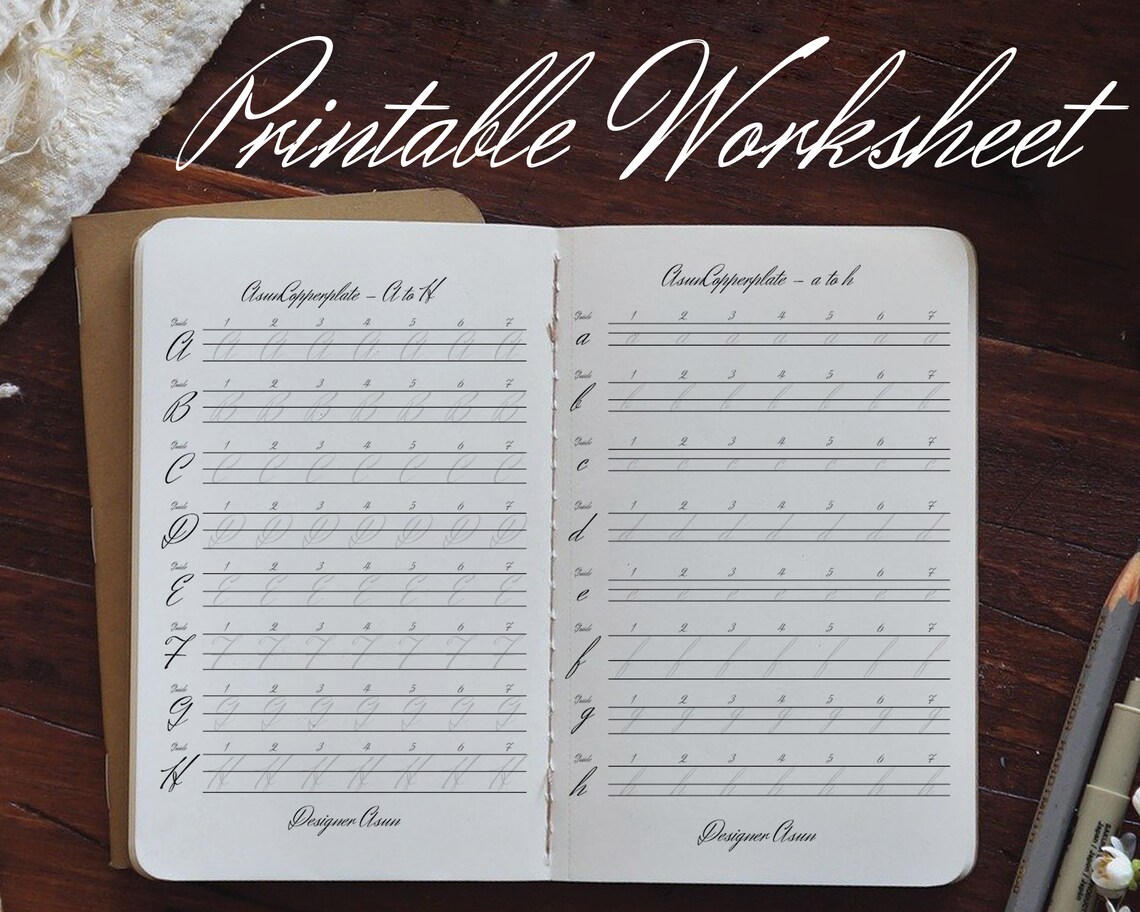 Printable Worksheet
AsunCopperplate – A to H
Guide 1 2 3 4 5 6 7
A A A A A A A A
Guide 1 2 3 4 5 6 7
B B B B B B B B
Guide 1 2 3 4 5 6 7
C C C C C C C C
Guide 1 2 3 4 5 6 7
D D D D D D D D
Guide 1 2 3 4 5 6 7
E E E E E E E E
Guide 1 2 3 4 5 6 7
F F F F F F F F
Guide 1 2 3 4 5 6 7
G G G G G G G G
Guide 1 2 3 4 5 6 7
H H H H H H H H
Designer Asun
AsunCopperplate – a to h
Guide 1 2 3 4 5 6 7
a a a a a a a a
Guide 1 2 3 4 5 6 7
b b b b b b b b
Guide 1 2 3 4 5 6 7
c c c c c c c c
Guide 1 2 3 4 5 6 7
d d d d d d d d
Guide 1 2 3 4 5 6 7
e e e e e e e e
Guide 1 2 3 4 5 6 7
f f f f f f f f
Guide 1 2 3 4 5 6 7
g g g g g g g g
Guide 1 2 3 4 5 6 7
h h h h h h h h
Designer Asun